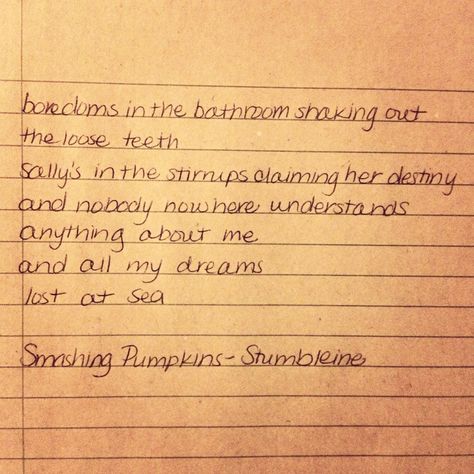 boredoms in the bathroom shaking out
the loose teeth
sally's in the stirrups claiming her destiny
and nobody nowhere understands
anything about me
and all my dreams
lost at sea
Smashing Pumpkins - Stumbleine